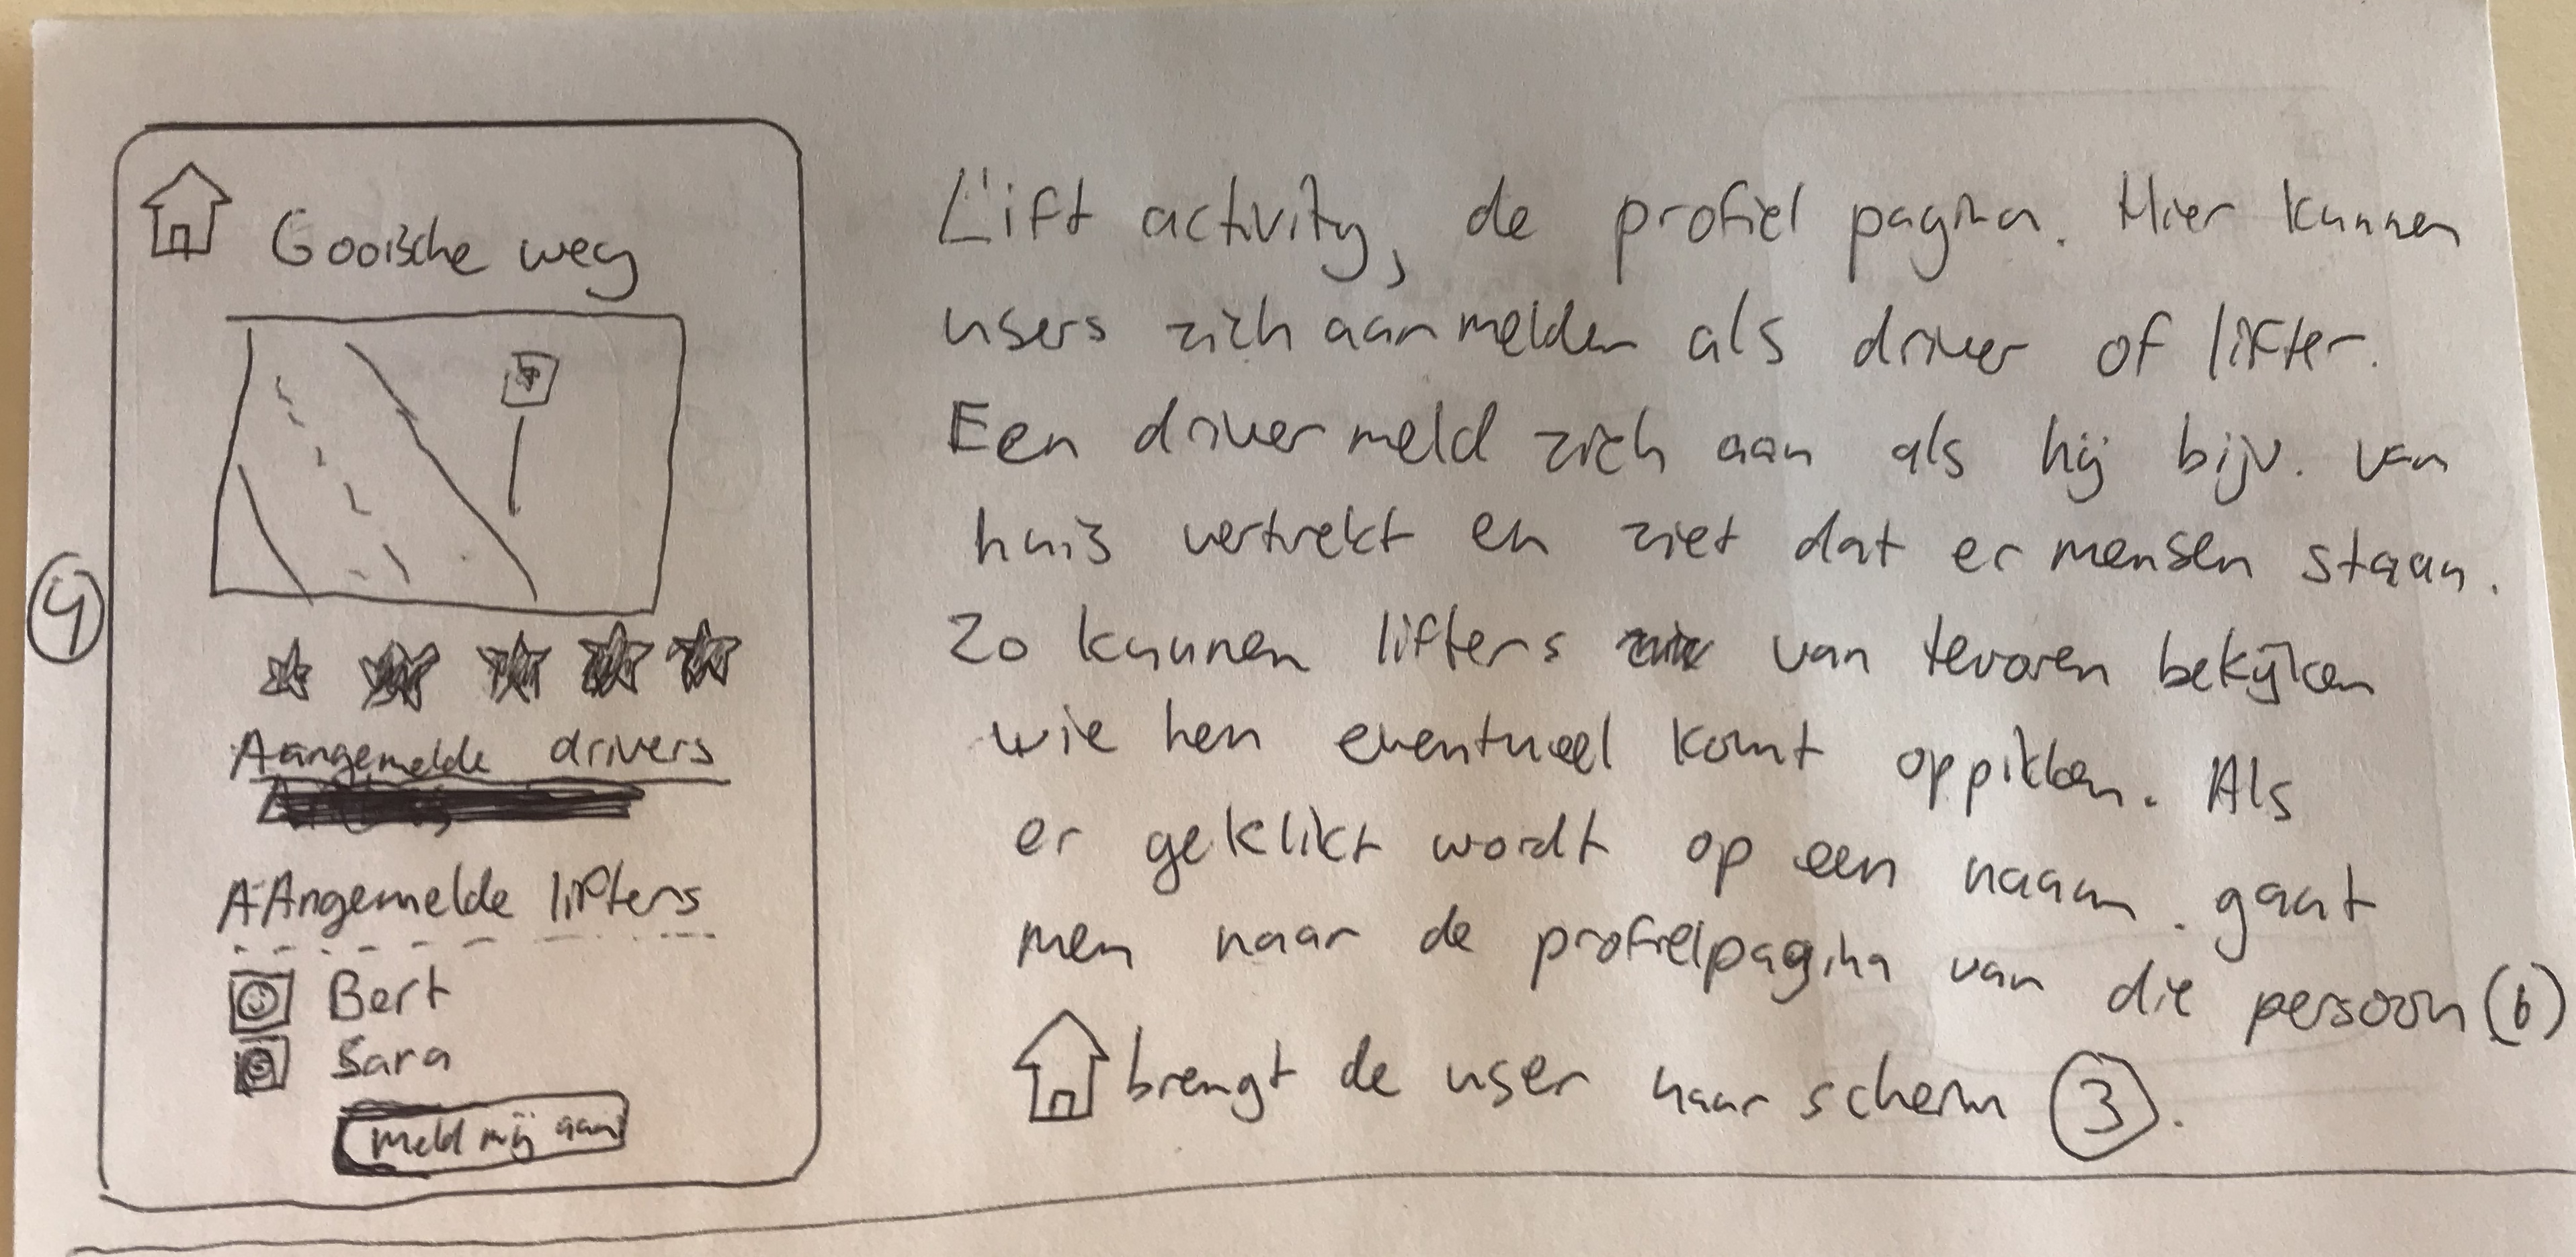 4
Gooische weg
Aangemelde drivers
AAngemelde lifters
Bert
Sara
Meld mij aan
Lift activity, de profiel pagina. Hier kunnen
users zich aanmelden als driver of lifter.
Een driver meld zich aan als hij bijv. van
huis vertrekt en ziet dat er mensen staan.
Zo kunnen lifters van tevoren bekijken
wie hen eventueel komt oppikken. Als
er geklikt wordt op een naam. gaat
men naar de profielpagina van die persoon (6)
brengt de user naar scherm 3.